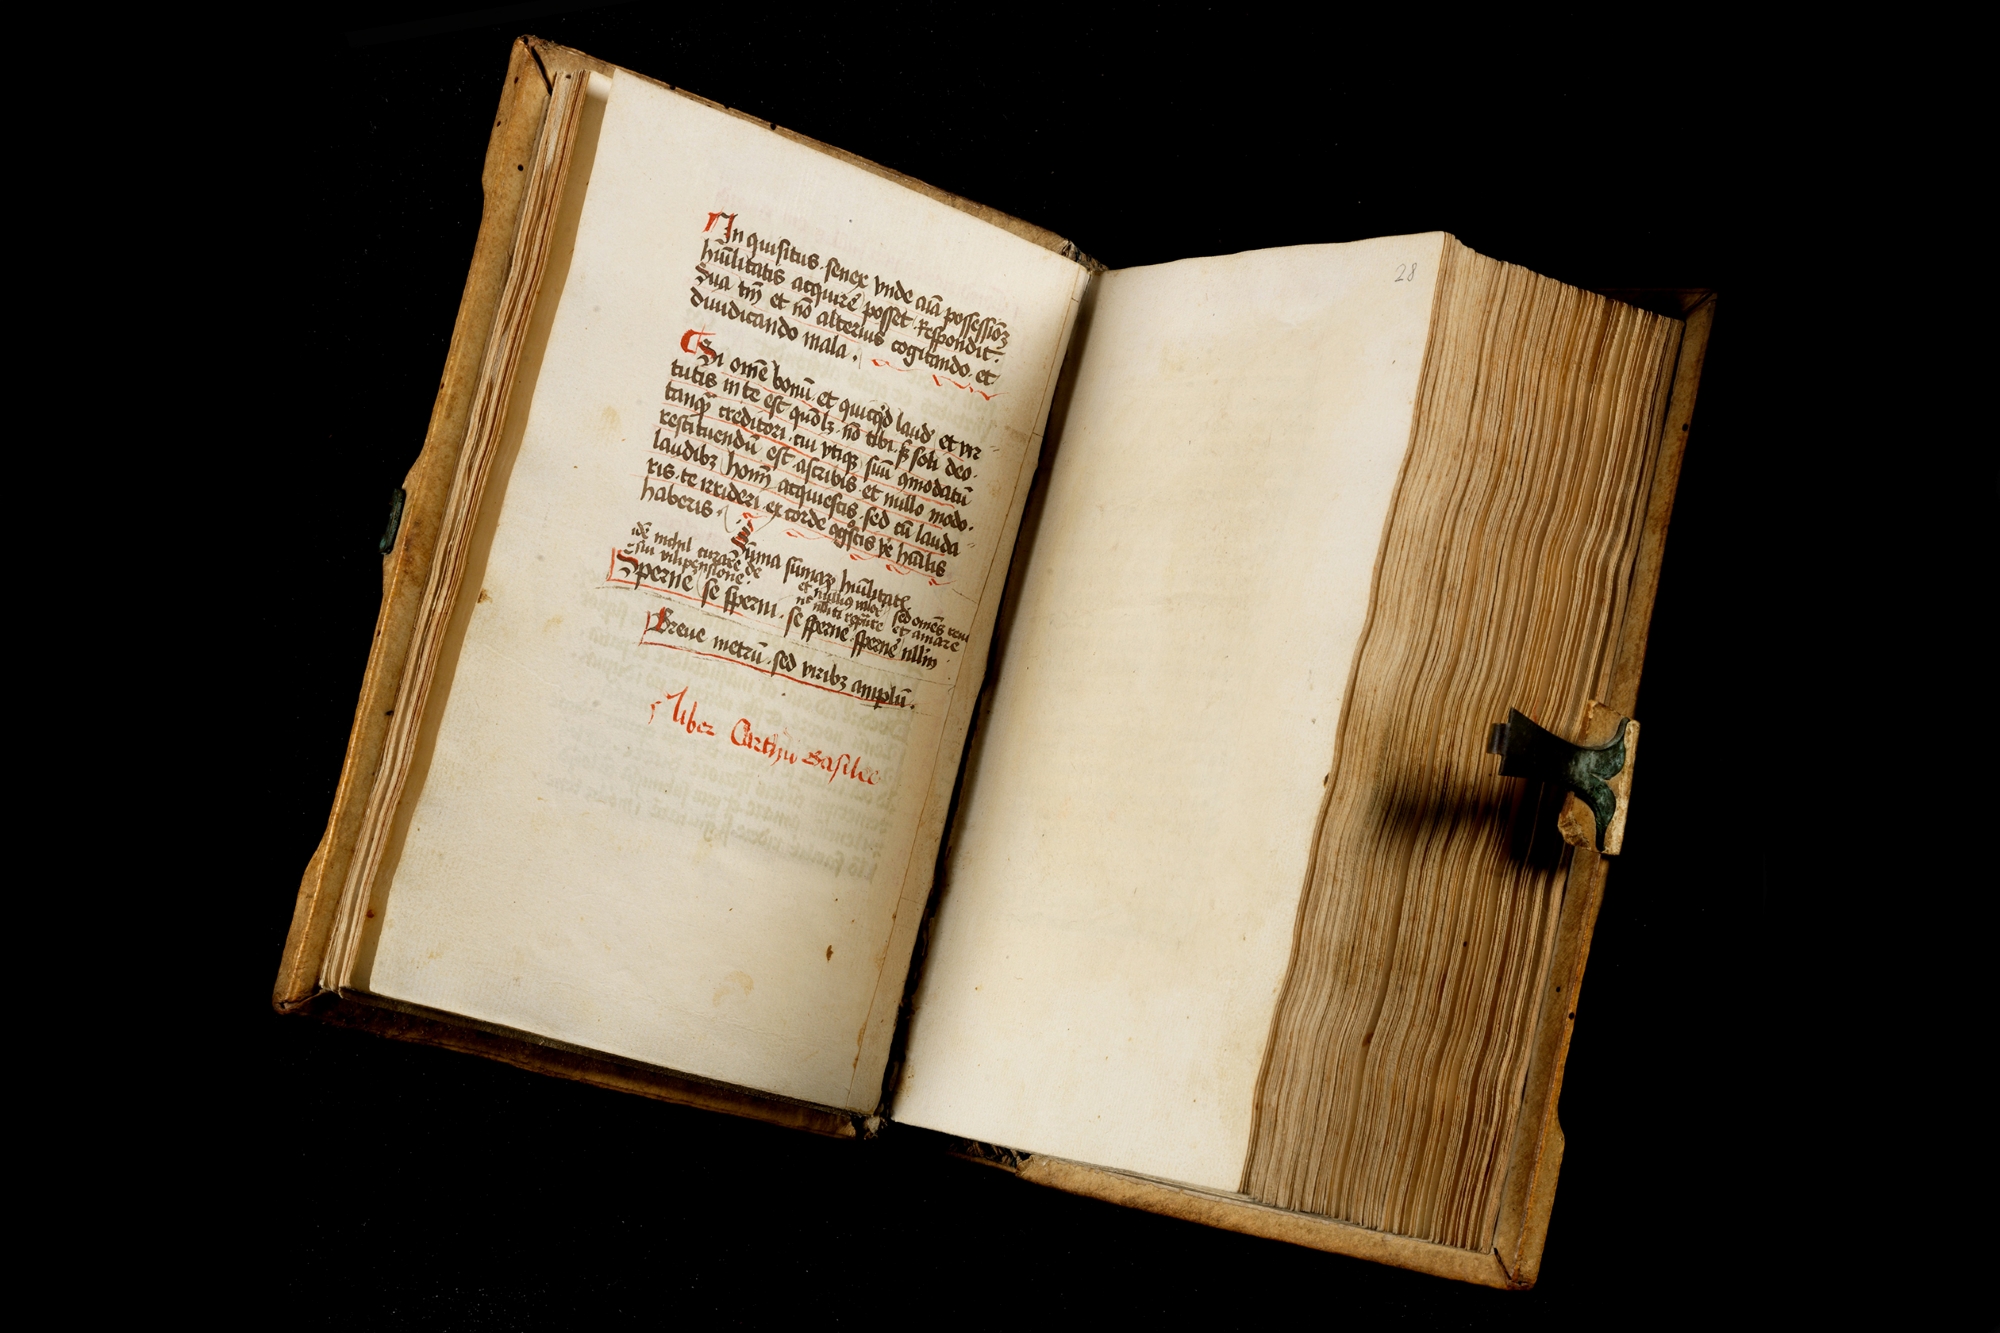 Inquisitus senex vnde aīa possessiōꝫ
hūilitatis acquirē posset. Respondit.
Sua tm̄ et nō alterius cogitando. et
diiudicando mala.
Si om̄e bonū et quicqd laud' et vir
tutis in te est quodlꝫ nō tibi sꝫ soli deo.
tanqꝫ creditori. cui vtiqꝫ suū cōmodatū
restituendū est ascribis et nullo modo.
laudibꝫ hom̄ acquiescis. sed cū lauda
ris. te irrideri ex corde cognoscis ve hūilis
haberis.
Suma sūmaꝫ hūilitatū
id est nichil curare de
sui vilipensione.
sed om̄es
et amare
Sperne se sperni. se sperne. sperne nllm
Breue metrū. sed viribꝫ amplū.
Liber Carthus Basilee
28